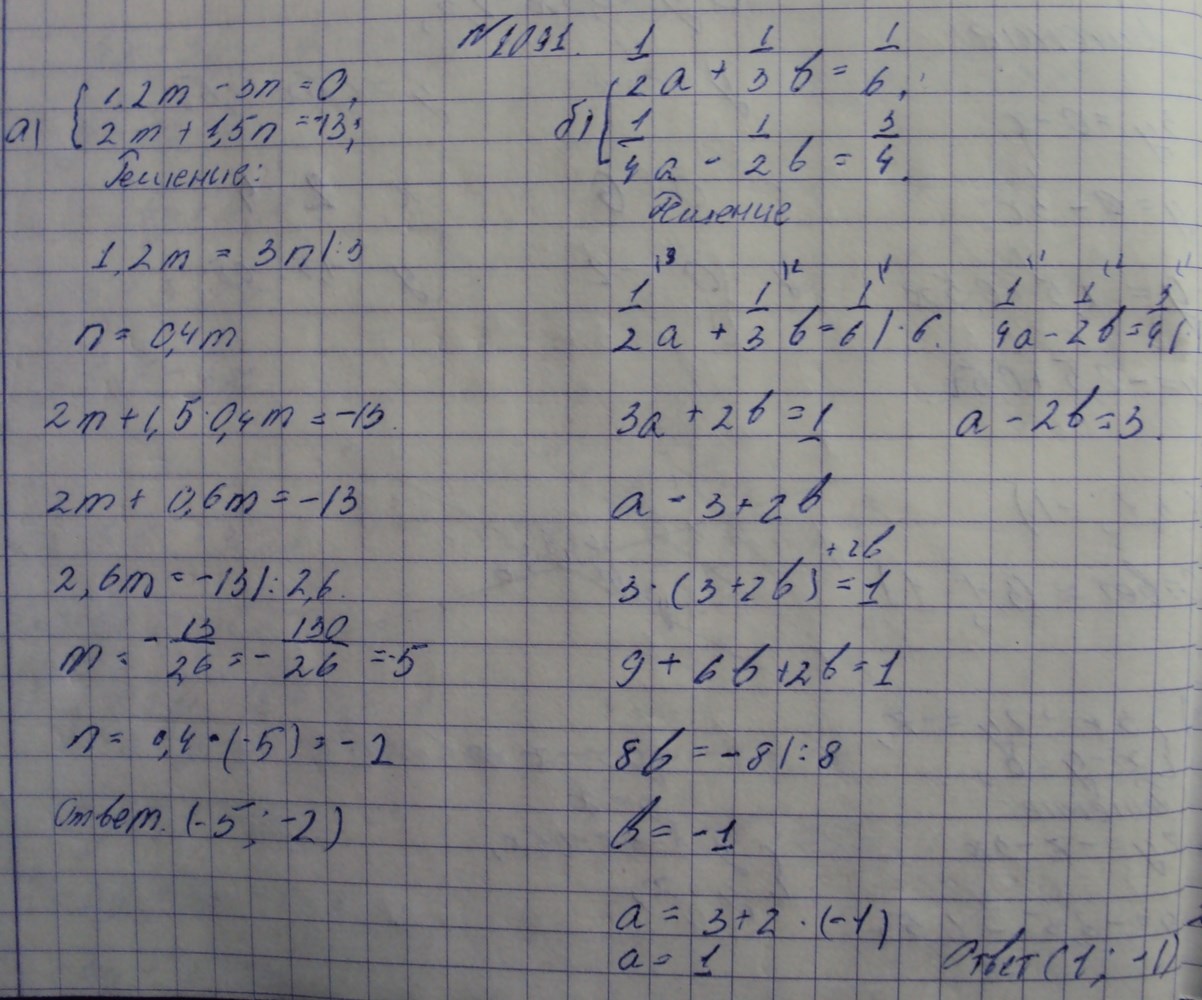 N1091.
а) { 1,2m - 3n = 0,
2m + 1,5n = -13;
Решение:
1,2m = 3n |:3
n = 0,4m
2m + 1,5·0,4m = -13.
2m + 0,6m = -13
2,6m = -13 |: 2,6.
m = - 13/2,6 = - 130/26 = -5
n = 0,4 · (-5) = -2
Ответ. (-5; -2)
б) { 1/2 a + 1/3 b = 1/6,
1/4 a - 1/2 b = 3/4.
Решение
1/2 a + 1/3 b = 1/6 | · 6. 1/4 a - 1/2 b = 3/4 |
3a + 2b = 1 a - 2b = 3.
a - 3 + 2b
3 · (3 + 2b) + 2b = 1
9 + 6b + 2b = 1
8b = -8 |: 8
b = -1
a = 3 + 2 · (-1)
a = 1 Ответ (1; -1)